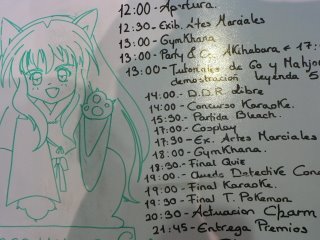 12:00.- Apertura.
12:30.- Exib. Artes Marciales
13:00.- GymKhana
13:00.- Party & Co. AKihabara + 17:
13:00.- Tutoriales de Go y Mahjon
demostración leyenda 5
14:00.- D.D.R. Libre
14:00.- Concurso KaraoKe.
15:30.- Partida Bleach.
17:00.- Cosplay
17:30.- Ex. Artes Marciales
18:00.- GymKhana.
18:30.- Final Quiz
19:00.- Detective Con
19:00.- Final KaraoKe.
19:30.- Final T. PoKemon
20:30.- Actuación Charm
21:45.- Entrega Premios